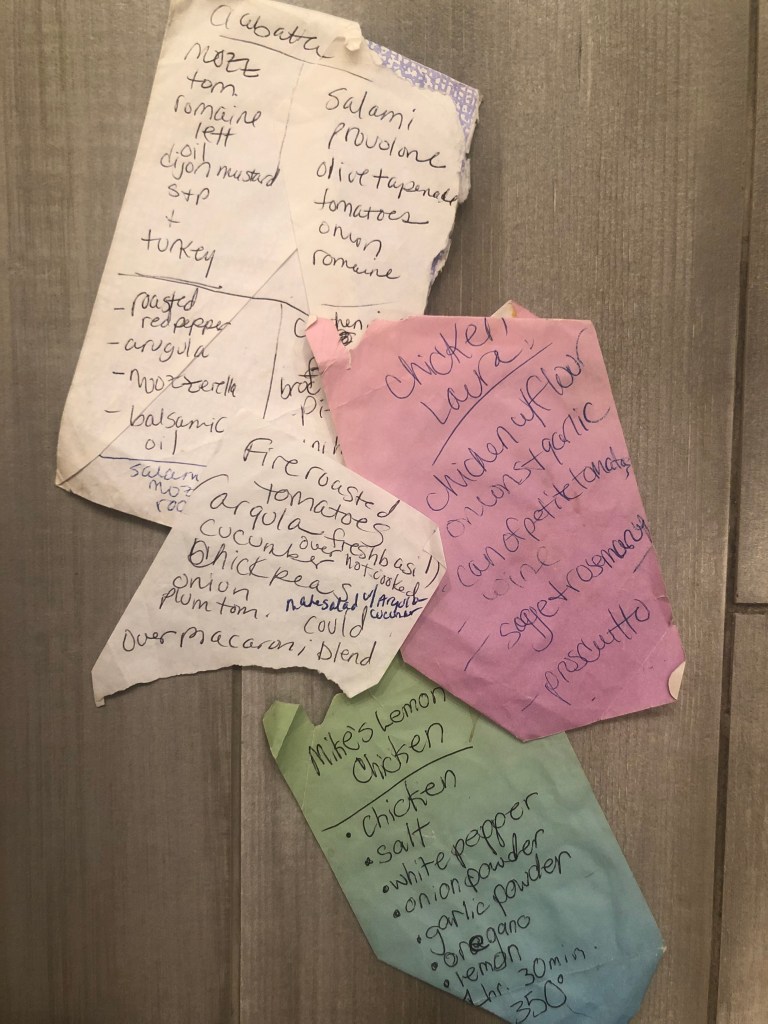 Ciabatta
mozz
tom
romaine
lett
oil
dijon mustard
S+P
+
turkey
Salami
provolone
olive tapenade
tomatoes
onion
romaine
- roasted
red pepper
- arugula
- mozzerella
- balsamic
oil
salam
moz
roc
Chicken
Laura!
chicken w flour
onions + garlic
- can of petite tomatoes
- wine
- sage + rosemary
- prosciutto
Fire roasted
tomatoes
argula fresh basil
cucumber over not cooked
chick peas
onion make salad w/ Arugula
plum tom. could cucumber
over macaroni blend
Mike's Lemon
Chicken
• chicken
• salt
• white pepper
• onion powder
• garlic powder
• oregano
• lemon
1 hr. 30 min.
350°